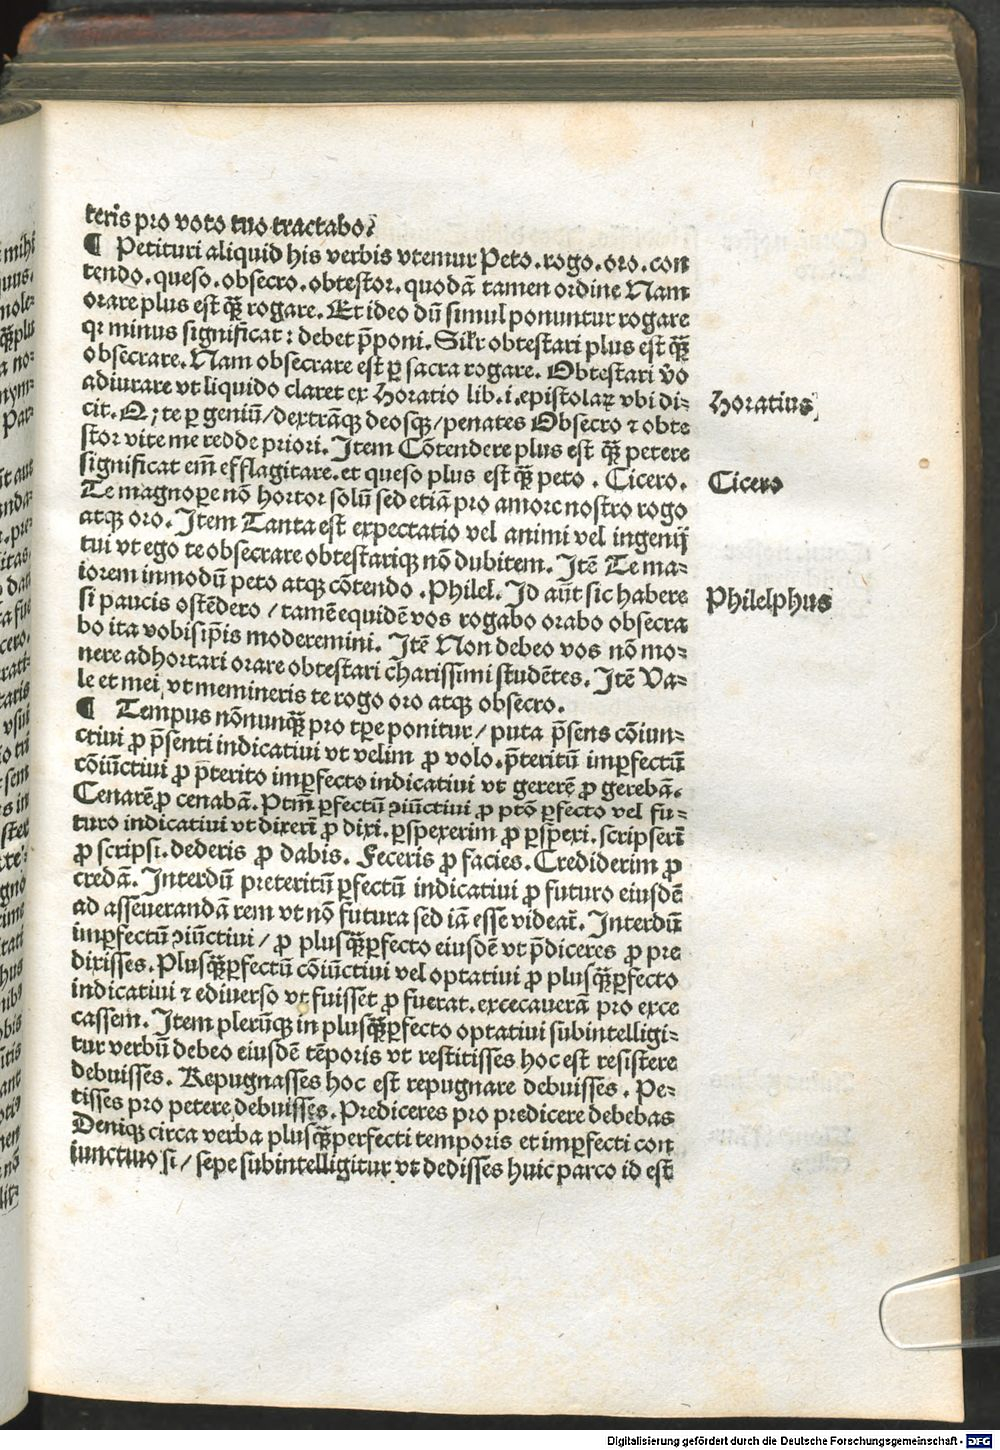 teris pro voto tuo tractabo?
¶ Petituri aliquid his verbis vtemur Peto. rogo. oro. con
tendo. queso. obsecro. obtestor. quodā tamen ordine Nam
orare plus est q̄ȝ rogare. Et ideo dū simul ponuntur rogare
qꝛ minus significat: debet p̄poni. Silr obtestari plus est q̄ȝ
obsecrare. Nam obsecrare est ꝑ sacra rogare. Obtestari v̄o
adiurare vt liquido claret ex Horatio lib. i. epistolaꝝ vbi di⸗
cit. Qꝫ te ꝑ geniū/ dextrāqꝫ deosqꝫ/ penates Obsecro ⁊ obte
stor vite me redde priori. Item Cōtendere plus est q̄ȝ petere
significat em̄ efflagitare. et queso plus est q̄ȝ peto. Cicero.
Te magnoꝑe nō hortor solū sed etiā pro amore nostro rogo
atqꝫ oro. Item Tanta est expectatio vel animi vel ingenij
tui vt ego te obsecrare obtestariqꝫ nō dubitem. Itē Te ma⸗
iorem inmodū peto atqꝫ cōtendo. Philel. Id aūt sic habere
si paucis ostēdero/ tamē equidē vos rogabo orabo obsecra
bo ita vobisip̄is moderemini. Itē Non debeo vos nō mo⸗
nere adhortari orare obtestari charissimi studētes. Itē Va⸗
le et mei vt memineris te rogo oro atqꝫ obsecro.
¶ Tempus nōnunq̄ȝ pro tꝑe ponitur/ puta p̄sens cōiun⸗
ctiui ꝓ p̄senti indicatiui vt velim ꝓ volo. p̄teritū imꝑfectū
cōiūctiui ꝓ p̄terito imꝑfecto indicatiui vt gererē ꝓ gerebā.
Cenarē ꝓ cenabā. Ptm̄ ꝑfectū ꝯiūctiui ꝓ ptō ꝑfecto vel fu⸗
turo indicatiui vt dixerī ꝓ dixi. ꝑspexerim ꝓ ꝑspexi. scripserī
ꝓ scripsi. dederis ꝓ dabis. Feceris ꝓ facies. Crediderim ꝓ
credā. Interdū preteritū ꝑfectū indicatiui ꝓ futuro eiusdē
ad asseuerandā rem vt nō futura sed iā esse videat̄. Interdū
imꝑfectū ꝯiūctiui/ ꝓ plusq̄ȝꝑfecto eiusdē vt p̄diceres ꝓ pre
dixisses. Plusq̄ȝꝑfectū cōiūctiui vel optatiui ꝓ plusq̄ȝꝑfecto
indicatiui ⁊ ediuerso vt fuisset ꝓ fuerat. excecauerā pro exce
cassem. Item plerūqꝫ in plusq̄ȝꝑfecto optatiui subintelligi⸗
tur verbū debeo eiusdē tēporis vt restitisses hoc est resistere
debuisses. Repugnasses hoc est repugnare debuisses. Pe⸗
tisses pro petere debuisses. Prediceres pro predicere debebas
Deniqꝫ circa verba plusq̄ȝperfecti temporis et imꝑfecti con
iunctiuo si/ sepe subintelligitur vt dedisses huic parco id est
Horatius
Cicero
Philelphus
Digitalisierung gefördert durch die Deutsche Forschungsgemeinschaft - DFG